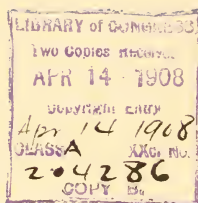 LIBRARY of CONGRESS
Two Copies Received
APR 14 1908
Copyright Entry
Apr 14 1908
CLASS A XXc. No.
204286
COPY B.